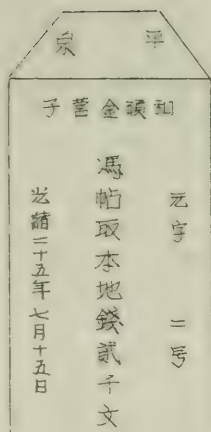 平泉
和碩金营子
元字 二号
馮帖取本地錢貳千文
光緒二十五年七月十五日